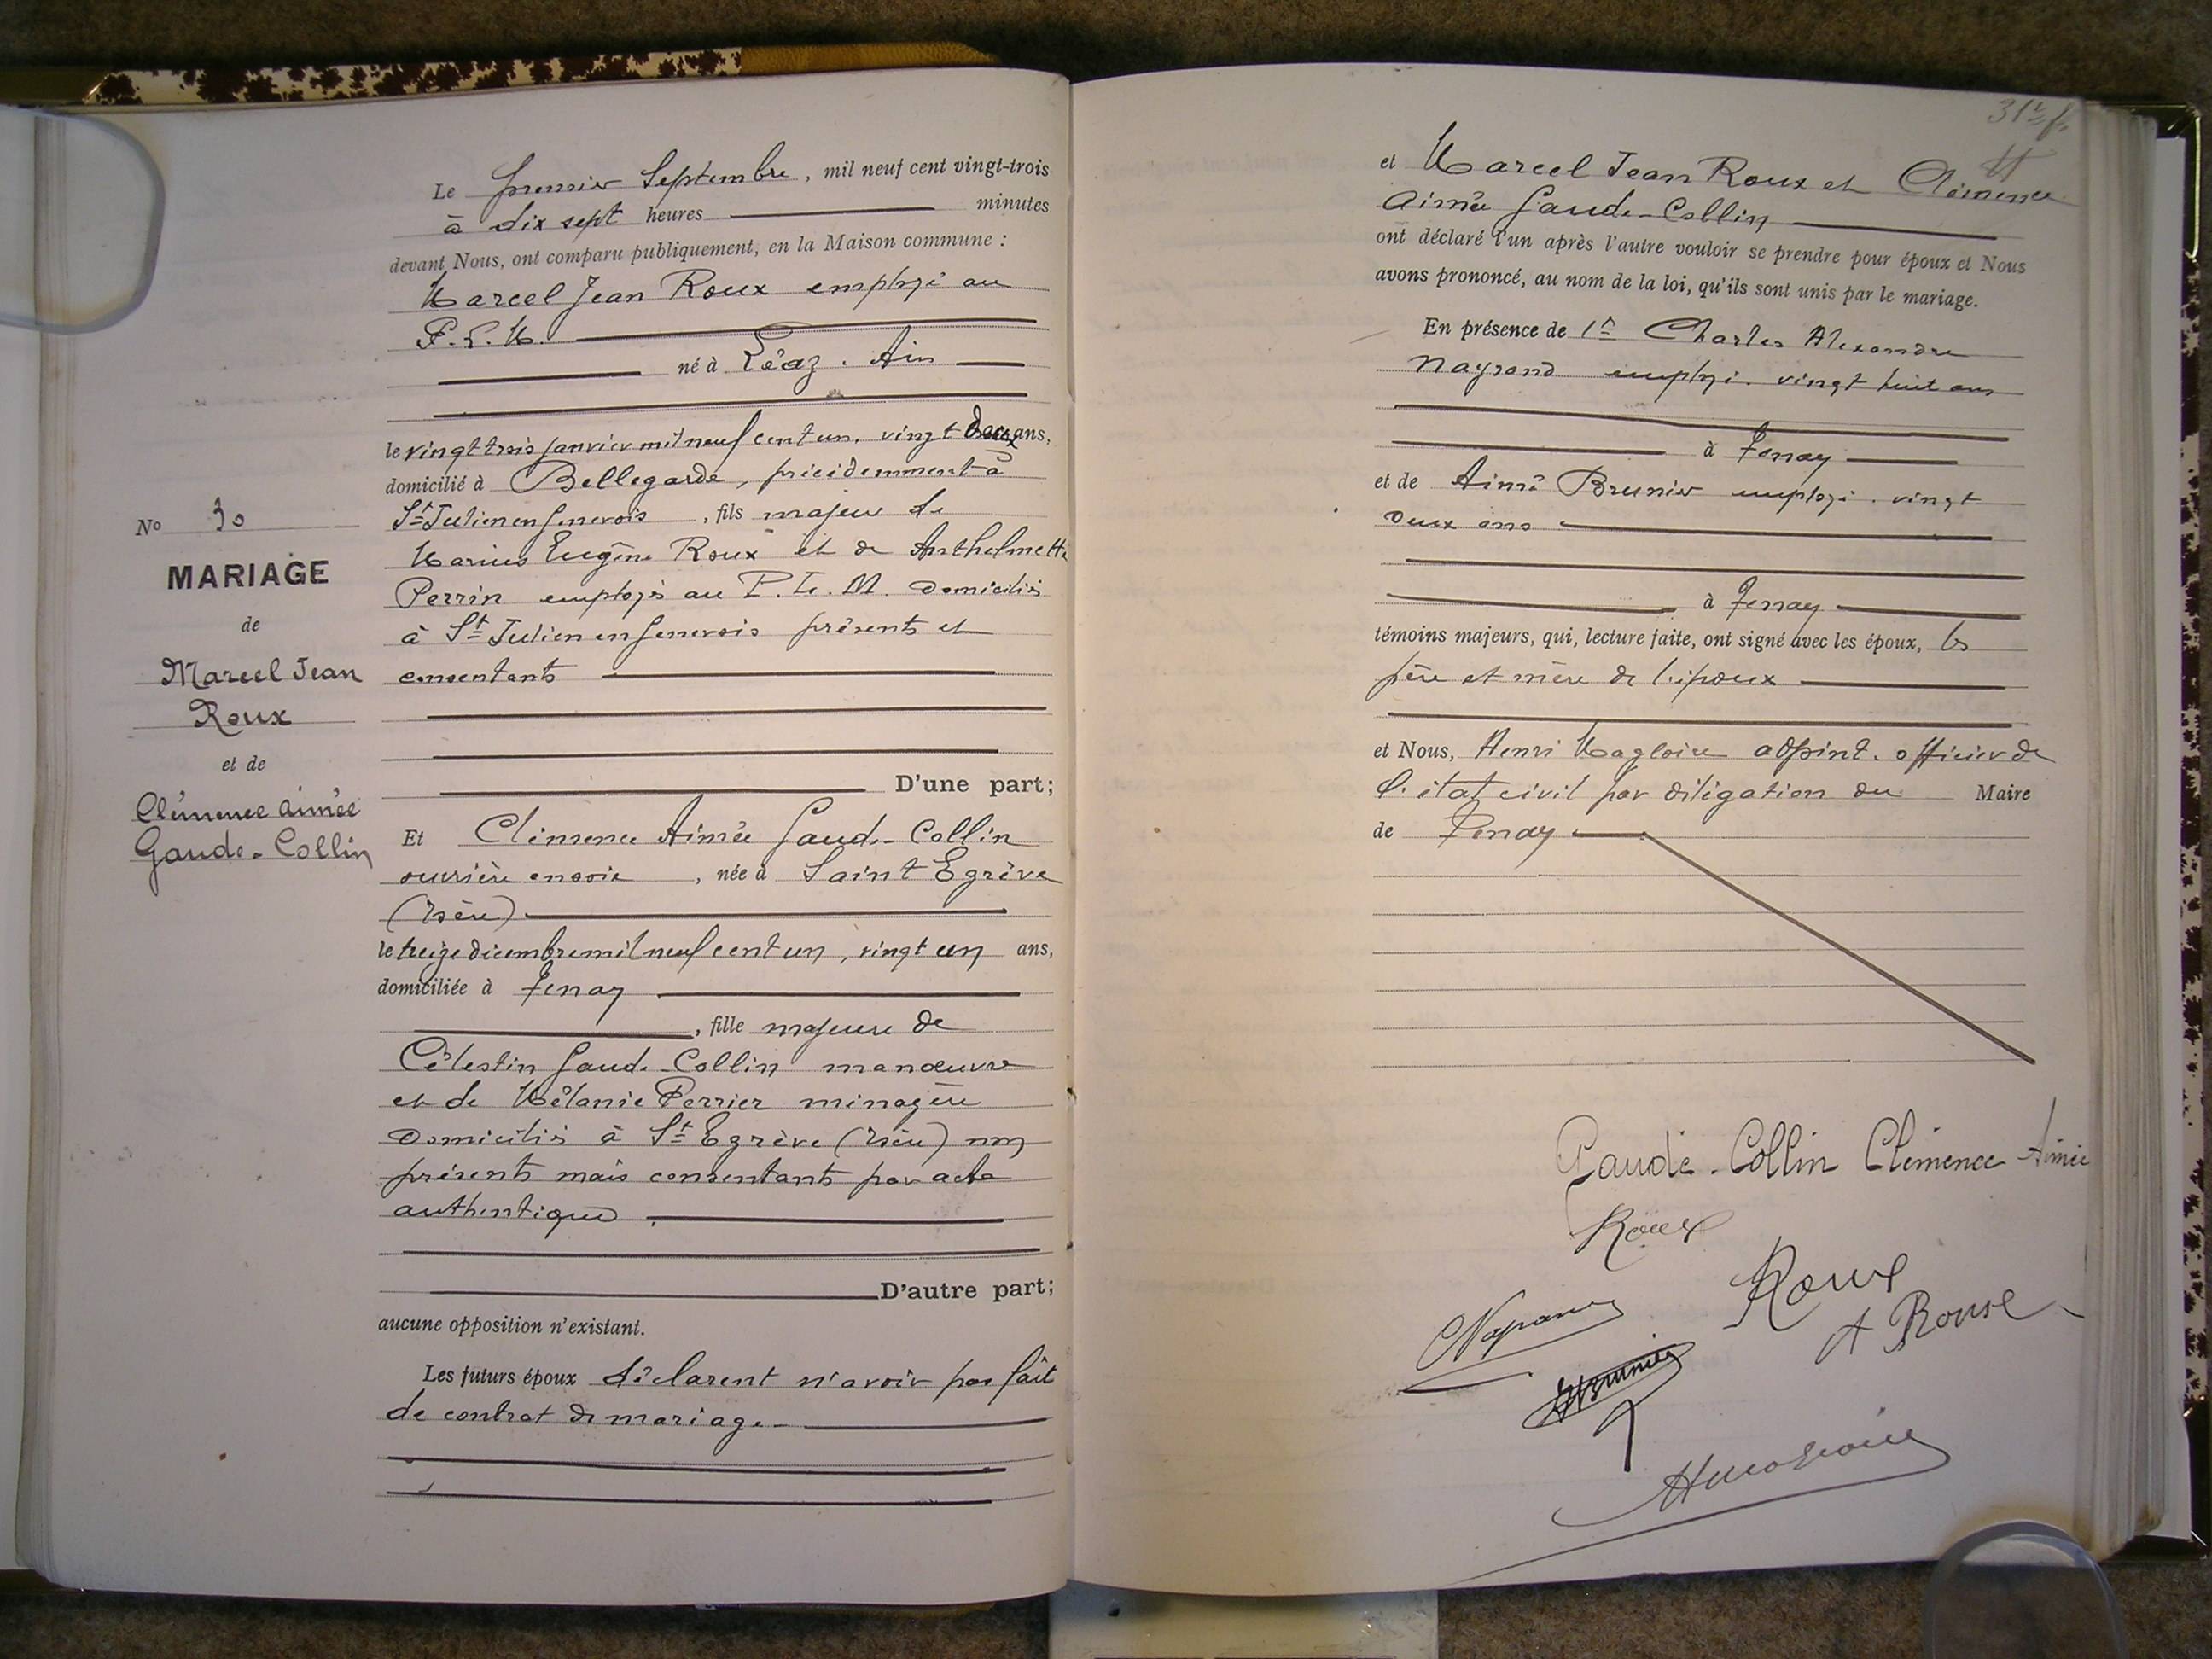 Le premier Septembre, mil neuf cent vingt-trois
à dix sept heures minutes
devant Nous, ont comparu publiquement, en la Maison commune :
Marcel Jean Roux employé au
P.L.M.
né à Léaz. Ain
le vingt trois janvier mil neuf cent un, vingt deux ans,
domicilié à Bellegarde, précédemment à
St Julien en Genevois, fils majeur de
Marius Eugène Roux et de Anthelmette
Perrin employés au P.L.M. domiciliés
à St Julien en Genevois présents et
consentants
D'une part;
No 30
MARIAGE
de
Marcel Jean
Roux
et de
Clémence Aimée
Gaude-Collin
Et Clémence Aimée Gaude-Collin
ouvrière en soie, née à Saint Egrève
(Isère)
le treize décembre mil neuf cent un, vingt un ans,
domiciliée à Tenay
, fille majeure de
Célestin Gaude-Collin manœuvre
et de Mélanie Perrier ménagère
domiciliés à St Egrève (Isère) non
présents mais consentants par acte
authentique.
D'autre part;
aucune opposition n'existant.
Les futurs époux déclarent n'avoir pas fait
de contrat de mariage
et Marcel Jean Roux et Clémence
Aimée Gaude-Collin
ont déclaré l'un après l'autre vouloir se prendre pour époux et Nous
avons prononcé, au nom de la loi, qu'ils sont unis par le mariage.
En présence de Charles Alexandre
employé. vingt huit ans
à Tenay
et de Aimé Brunier employé. vingt
deux ans
à Tenay
témoins majeurs, qui, lecture faite, ont signé avec les époux, les
père et mère de l'époux
et Nous, Henri Magloire adjoint. officier de
l'état civil par délégation du Maire
de Tenay
Gaude-Collin Clémence Aimée
Roux
Roux
A Roux
Brunier